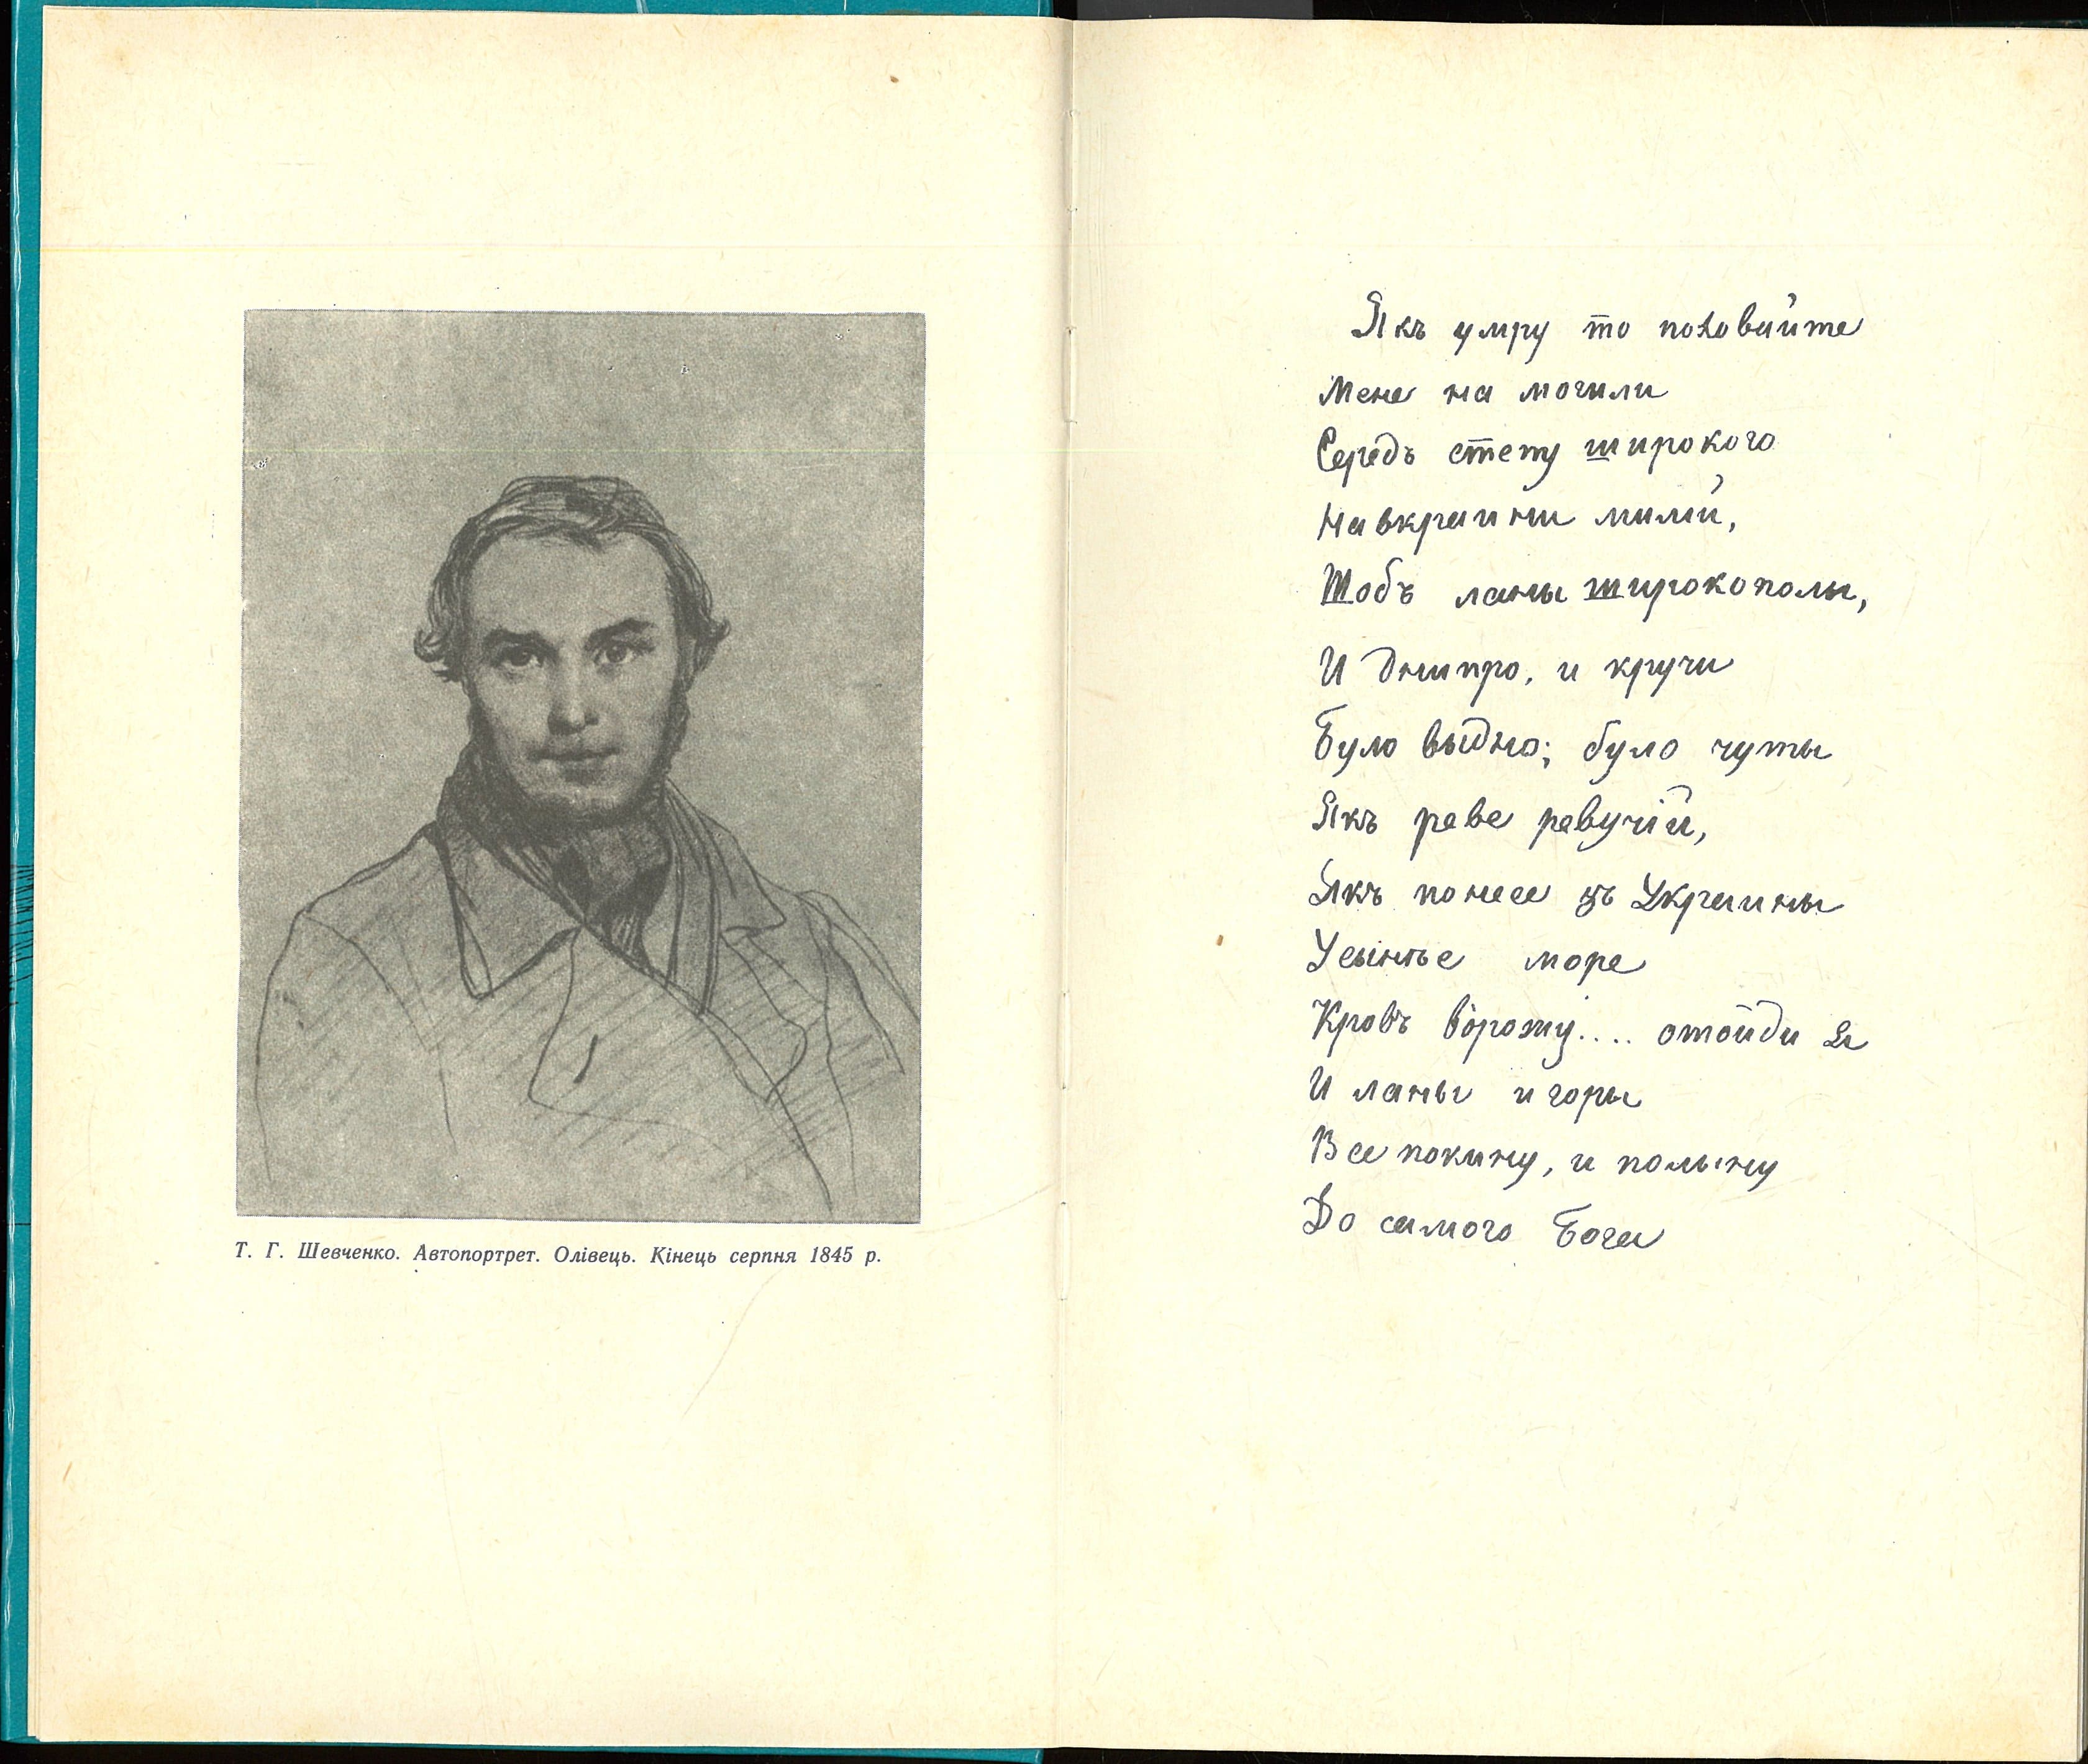 Т. Г. Шевченко. Автопортрет. Олівець. Кінець серпня 1845 р.
Якъ умру то поховайте
Мене на могили
Середъ степу широкого
Навкраини милій,
Шобъ ланы широкополы,
И Днипро, и кручи
Було выдно; було чуты
Якъ реве ревучій,
Якъ понесе зъ Украины
Усынѣе море
Кровъ ворожу.... отойди я
И ланы и горы
Все покину, и полыну
До самого Бога